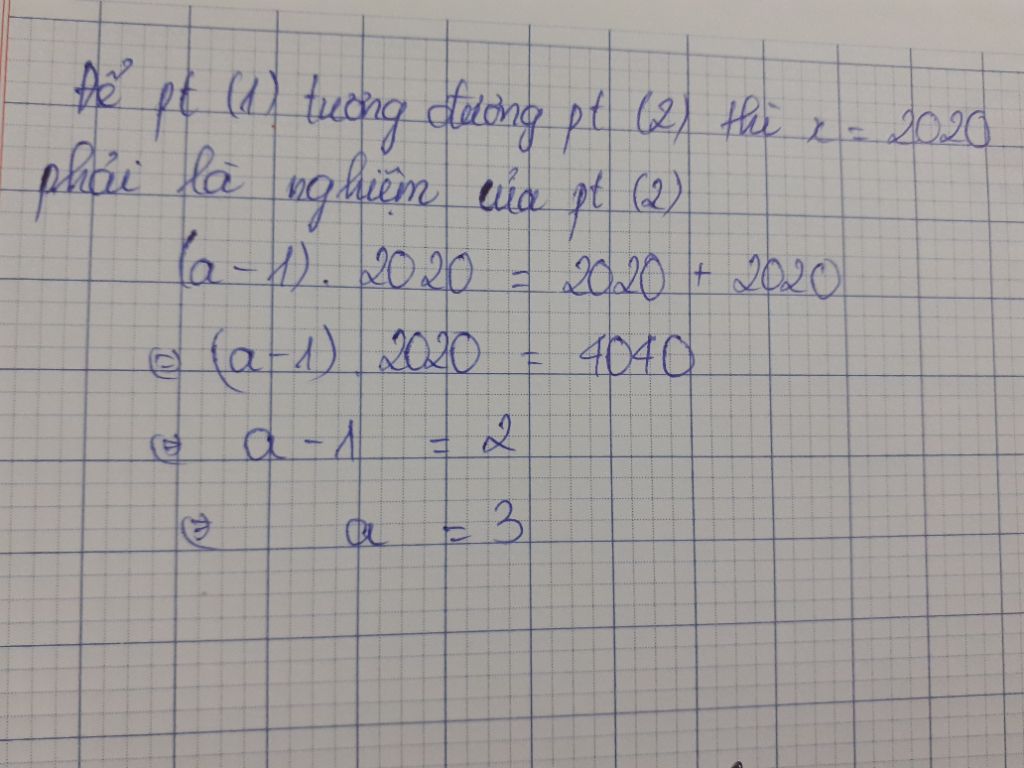 Để pt (1) tương đương pt (2) thì x = 2020
phải là nghiệm của pt (2)
(a - 1). 2020 = 2020 + 2020
⇔ (a - 1). 2020 = 4040
⇔ a - 1 = 2
⇔ a = 3